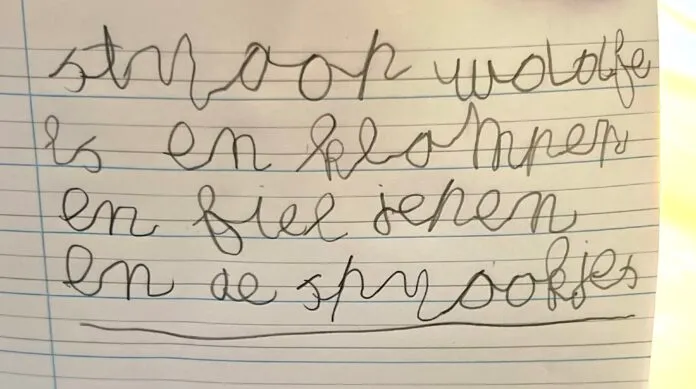 stroop wolafe
ls en klompen
en fiel jenen
en de sprookjes